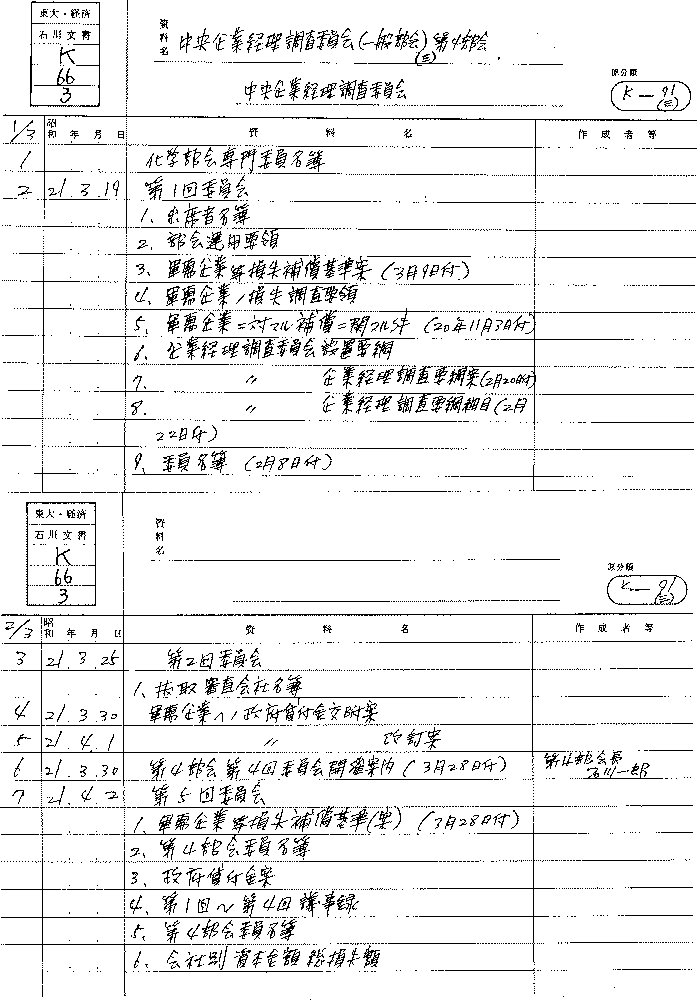 東大・経済
石川文書
K
66
3
資料名 中央企業経理調査委員会(一般部会)(三)第4部会
中央企業経理調査委員会
原分類
K-91(三)
1/3 昭和 年 月 日 資 料 名 作 成 者 等
1 化学部会専門委員名簿
2 21.3.19 第1回委員会
1、出席者名簿
2、部会運用要領
3、軍需企業等損失補償基準案(3月9日付)
4、軍需企業ノ損失調査要領
5、軍需企業ニ対スル補償ニ関スル件(20年11月3日付)
6、企業経理調査委員会設置要綱
7、 〃 企業経理調査要綱案(2月20日付)
8、 〃 企業経理調査要綱細目(2月
22日付)
9、委員名簿(2月8日付)
東大・経済
石川文書
K
66
3
資料名
原分類
K-91(三)
2/3 昭和 年 月 日 資 料 名 作 成 者 等
3 21.3.25 第2回委員会
1、抜取審査会社名簿
4 21.3.30 軍需企業ヘノ政府貸付金交附案
5 21.4.1 〃 改訂案
6 21.3.30 第4部会第4回委員会開催案内(3月28日付) 第4部会長
石川一郎
7 21.4.2 第5回委員会
1、軍需企業等損失補償基準(案)(3月28日付)
2、第4部会委員名簿
3、政府貸付金案
4、第1回~第4回議事録
5、第4部会委員名簿
6、会社別資本金額総損失額